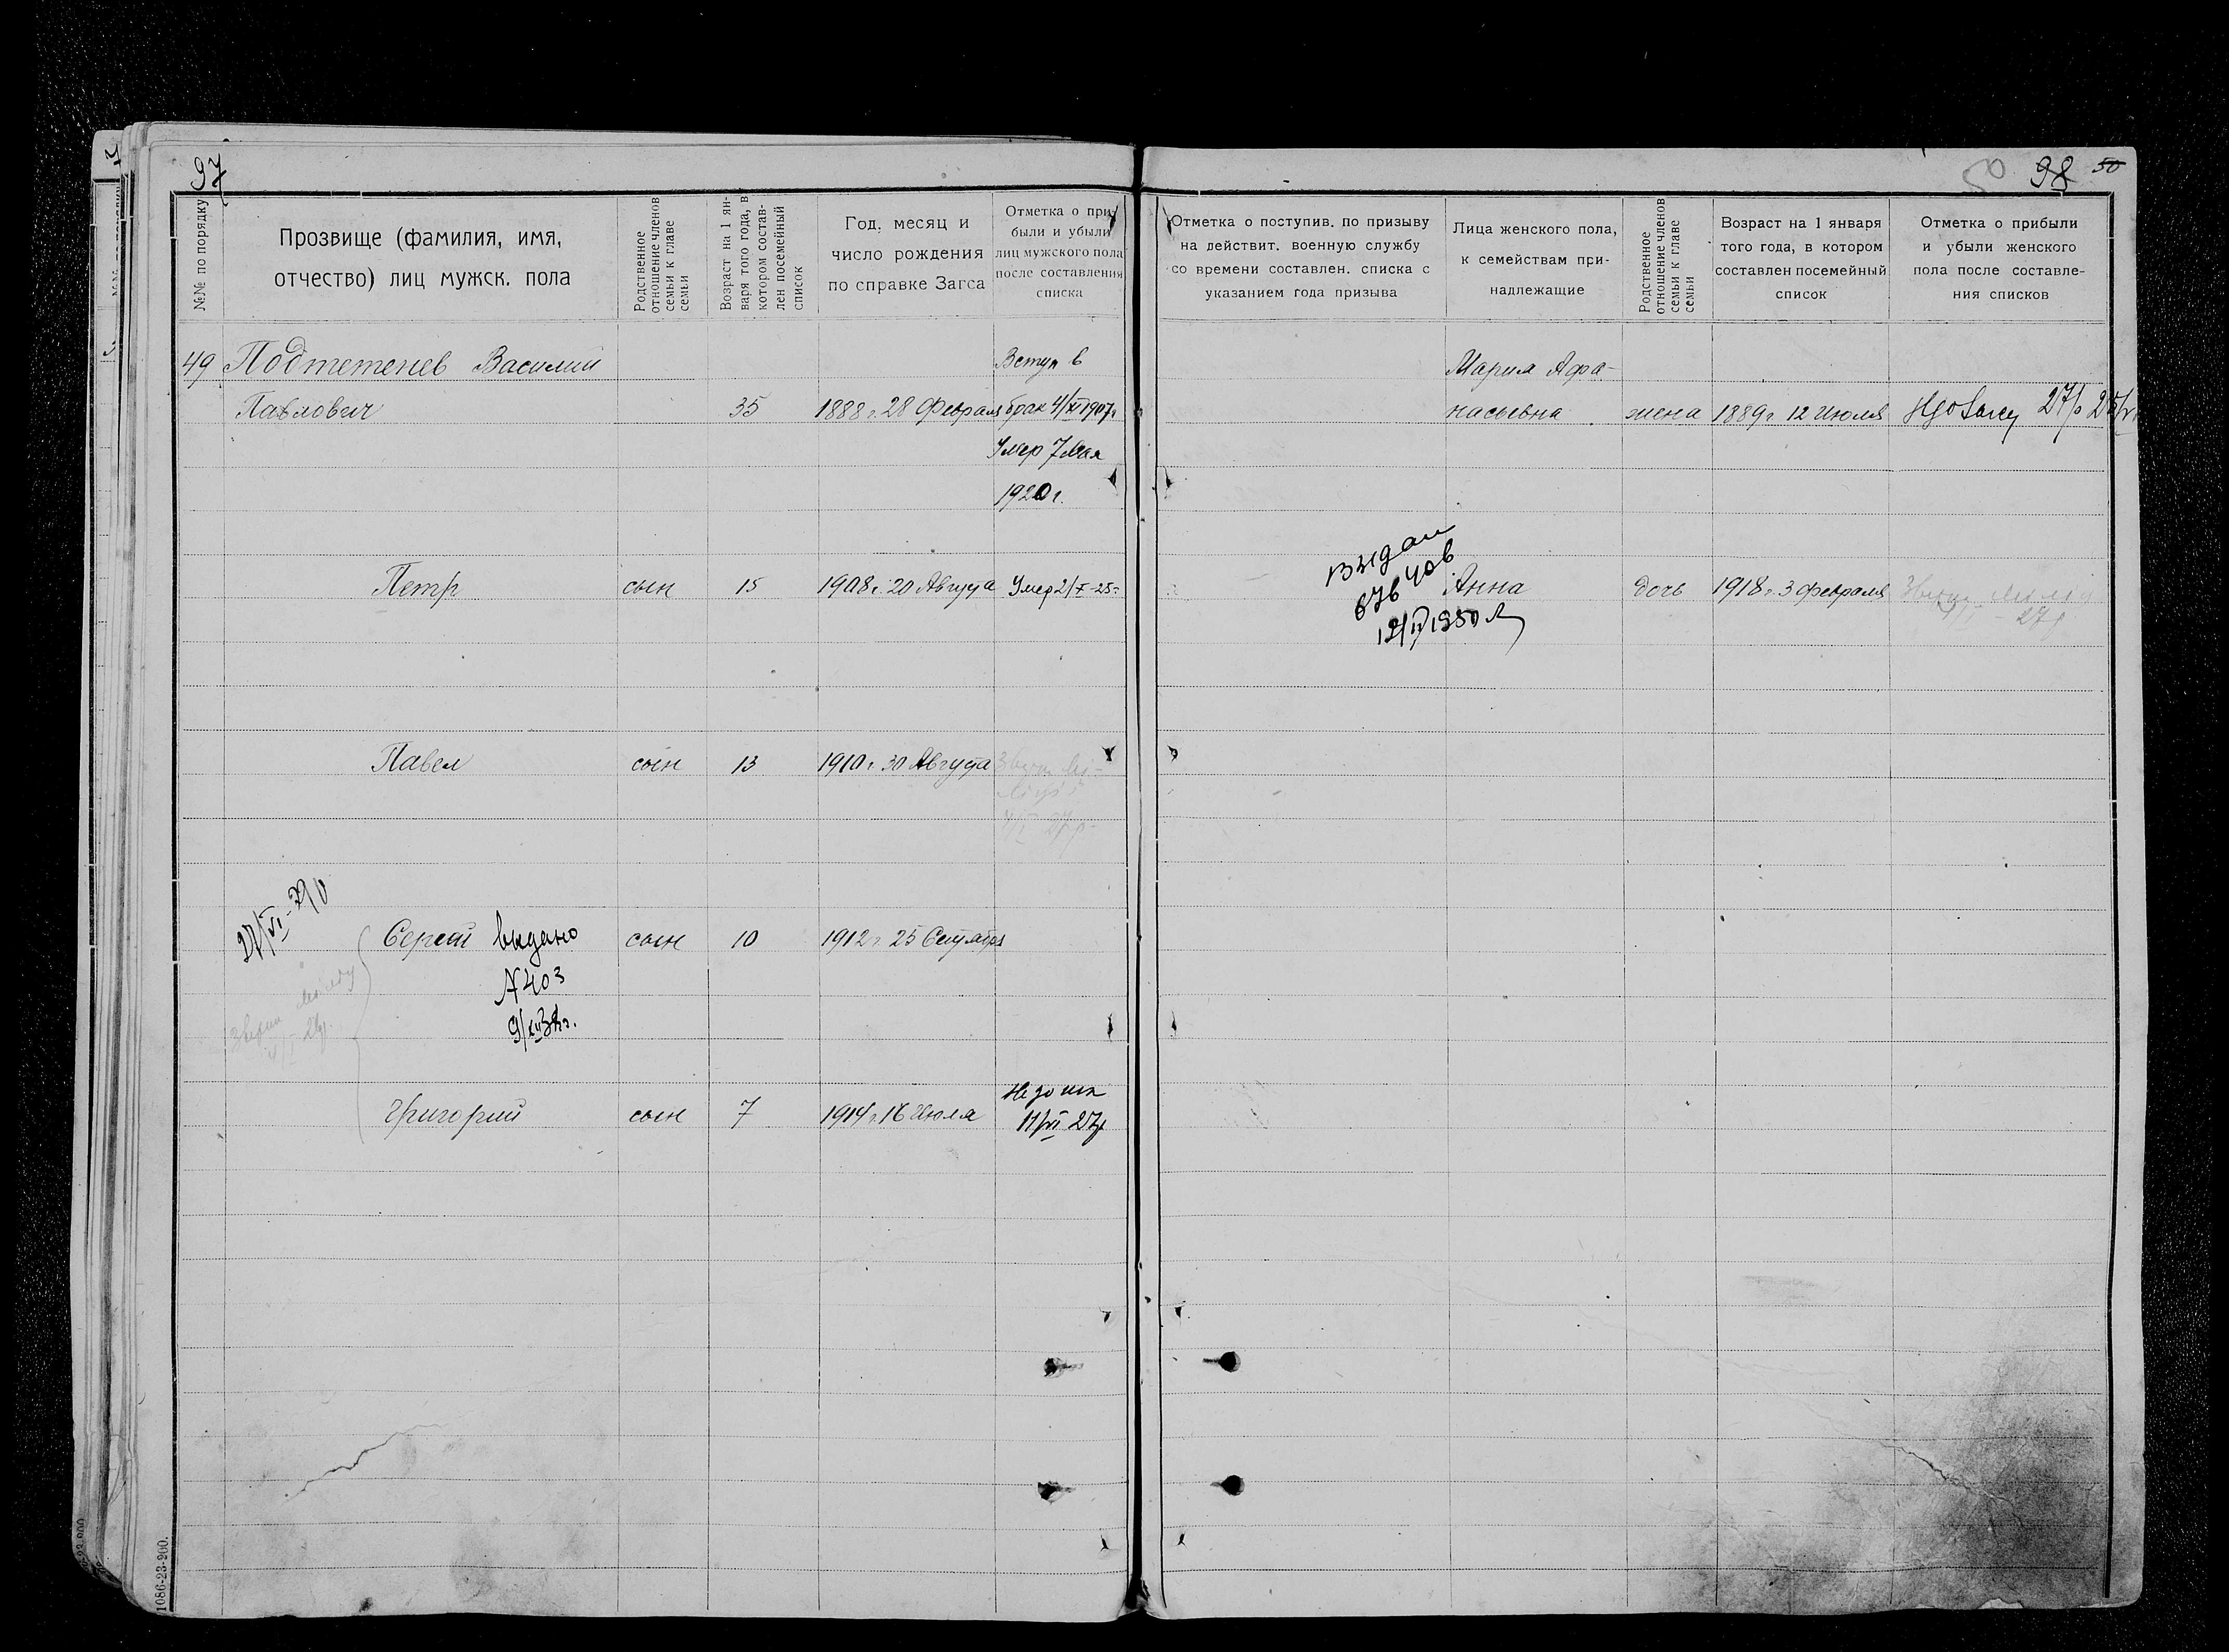 97
№№ по порядку
Прозвище (фамилия, имя,
отчество) лиц мужск. пола
Родственное
отношение членов
семьи к главе
семьи
Возраст на 1 ян-
варя того года, в
котором состав-
лен посемейный
список
Год, месяц и
число рождения
по справке Загса
Отметка о при-
были и убыли
лиц мужского пола
после составления
списка
49 Подтетенев Василий
Вступ в
Павлович 35 1888 г. 28 Февраля брак 4/XI 1907г.
Умер 7 Мая
1920 г.
Петр сын 15 1908 г. 20 Августа Умер 2/X-25г
Павел сын 13 1910 г. 30 Августа
27/VI
Сергей выдано сын 10 1912 г. 25 Сентября
№403
Григорий сын 7 1914 г. 16 Июля
11/VI 27г
1086-23-900.
50 98 50
Отметка о поступив. по призыву
на действит. военную службу
со времени составлен. списка с
указанием года призыва
Лица женского пола,
к семействам при-
надлежащие
Родственное
отношение членов
семьи к главе
семьи
Возраст на 1 января
того года, в котором
составлен посемейный
список
Отметка о прибыли
и убыли женского
пола после составле-
ния списков
Мария Афа-
насьевна жена 1889 г. 12 Июля
выдан
Анна дочь 1918 г. 3 Февраля
27г